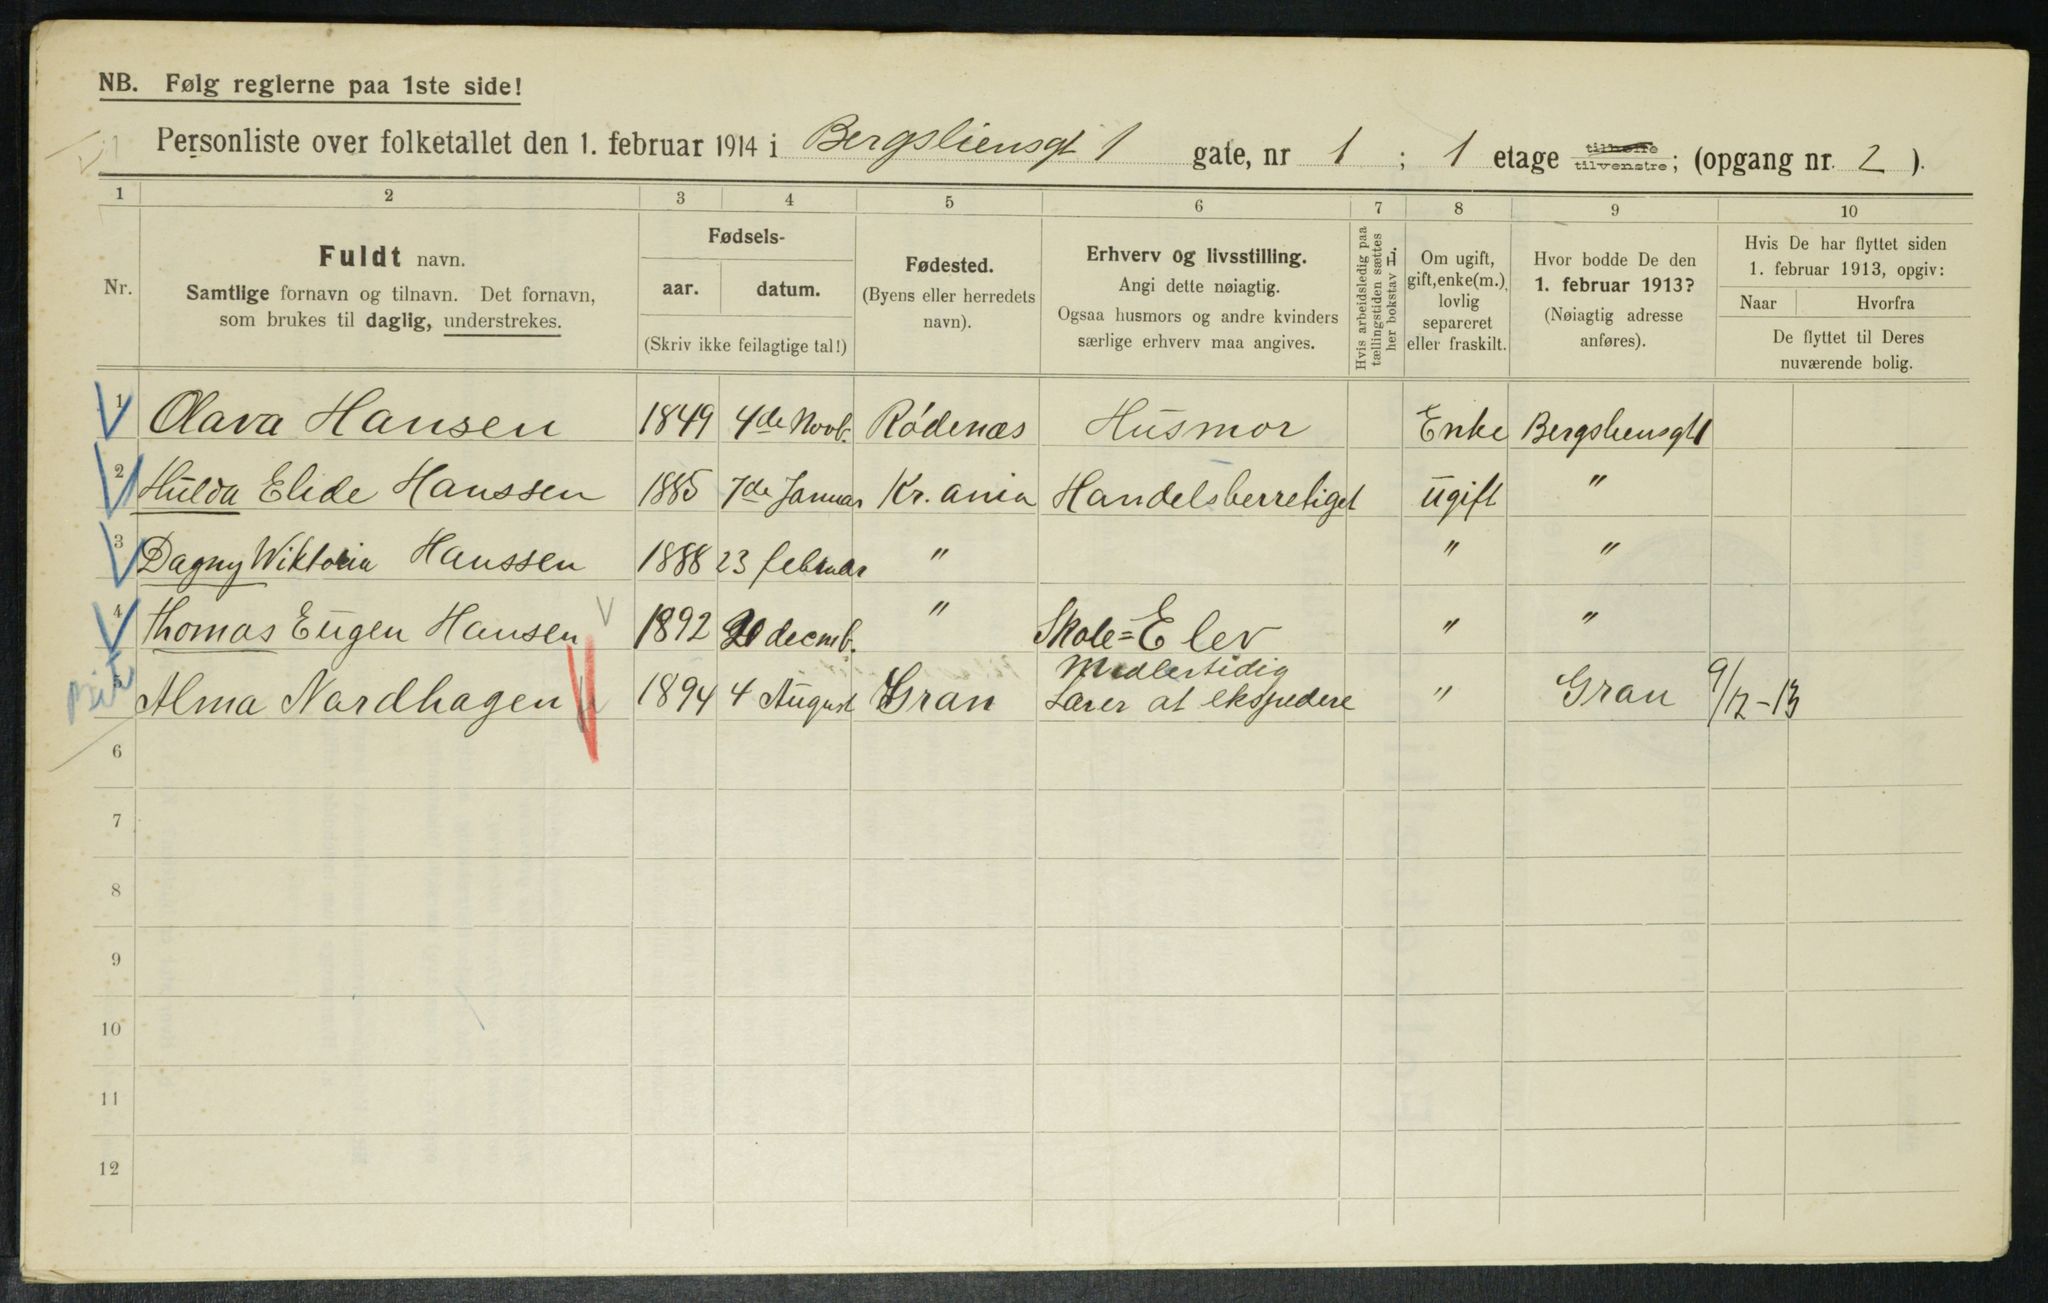 NB. Følg reglerne paa 1ste side!
Personliste over folketallet den 1. februar 1914 i Bergsliensgt 1 gate, nr 1 ; 1 etage tilhøire tilvenstre; (opgang nr. 2 ).
1 2 3 4 5 6 7 8 9 10
Nr.
Fuldt navn.
Samtlige fornavn og tilnavn. Det fornavn,
som brukes til daglig, understrekes.
Fødsels-
aar. datum.
(Skriv ikke feilagtige tal!)
Fødested.
(Byens eller herredets
navn).
Erhverv og livsstilling.
Angi dette nøiagtig.
Ogsaa husmors og andre kvinders
særlige erhverv maa angives.
Hvis arbeidsledig paa
tællingstiden sættes
her bokstav L.
Om ugift,
gift, enke(m.),
lovlig
separeret
eller fraskilt.
Hvor bodde De den
1. februar 1913?
(Nøiagtig adresse
anføres).
Hvis De har flyttet siden
1. februar 1913, opgiv:
Naar Hvorfra
De flyttet til Deres
nuværende bolig.
1 Olava Hansen 1849 4de Novb. Rödenæs Husmor Enke Bergsliensgt 1
2 Hulda Elide Hanssen 1885 7de Januar Kr.ania Handelsberretiget ugift "
3 Dagny Wiktoria Hanssen 1888 23 februar " " "
4 Thomas Eugen Hansen 1892 20 decmb. " Skole=Elev " "
5 Alma Nordhagen 1894 4 August Gran Midlertidig
Lærer at ekspedere " Gran 9/12-13
6
7
8
9
10
11
12